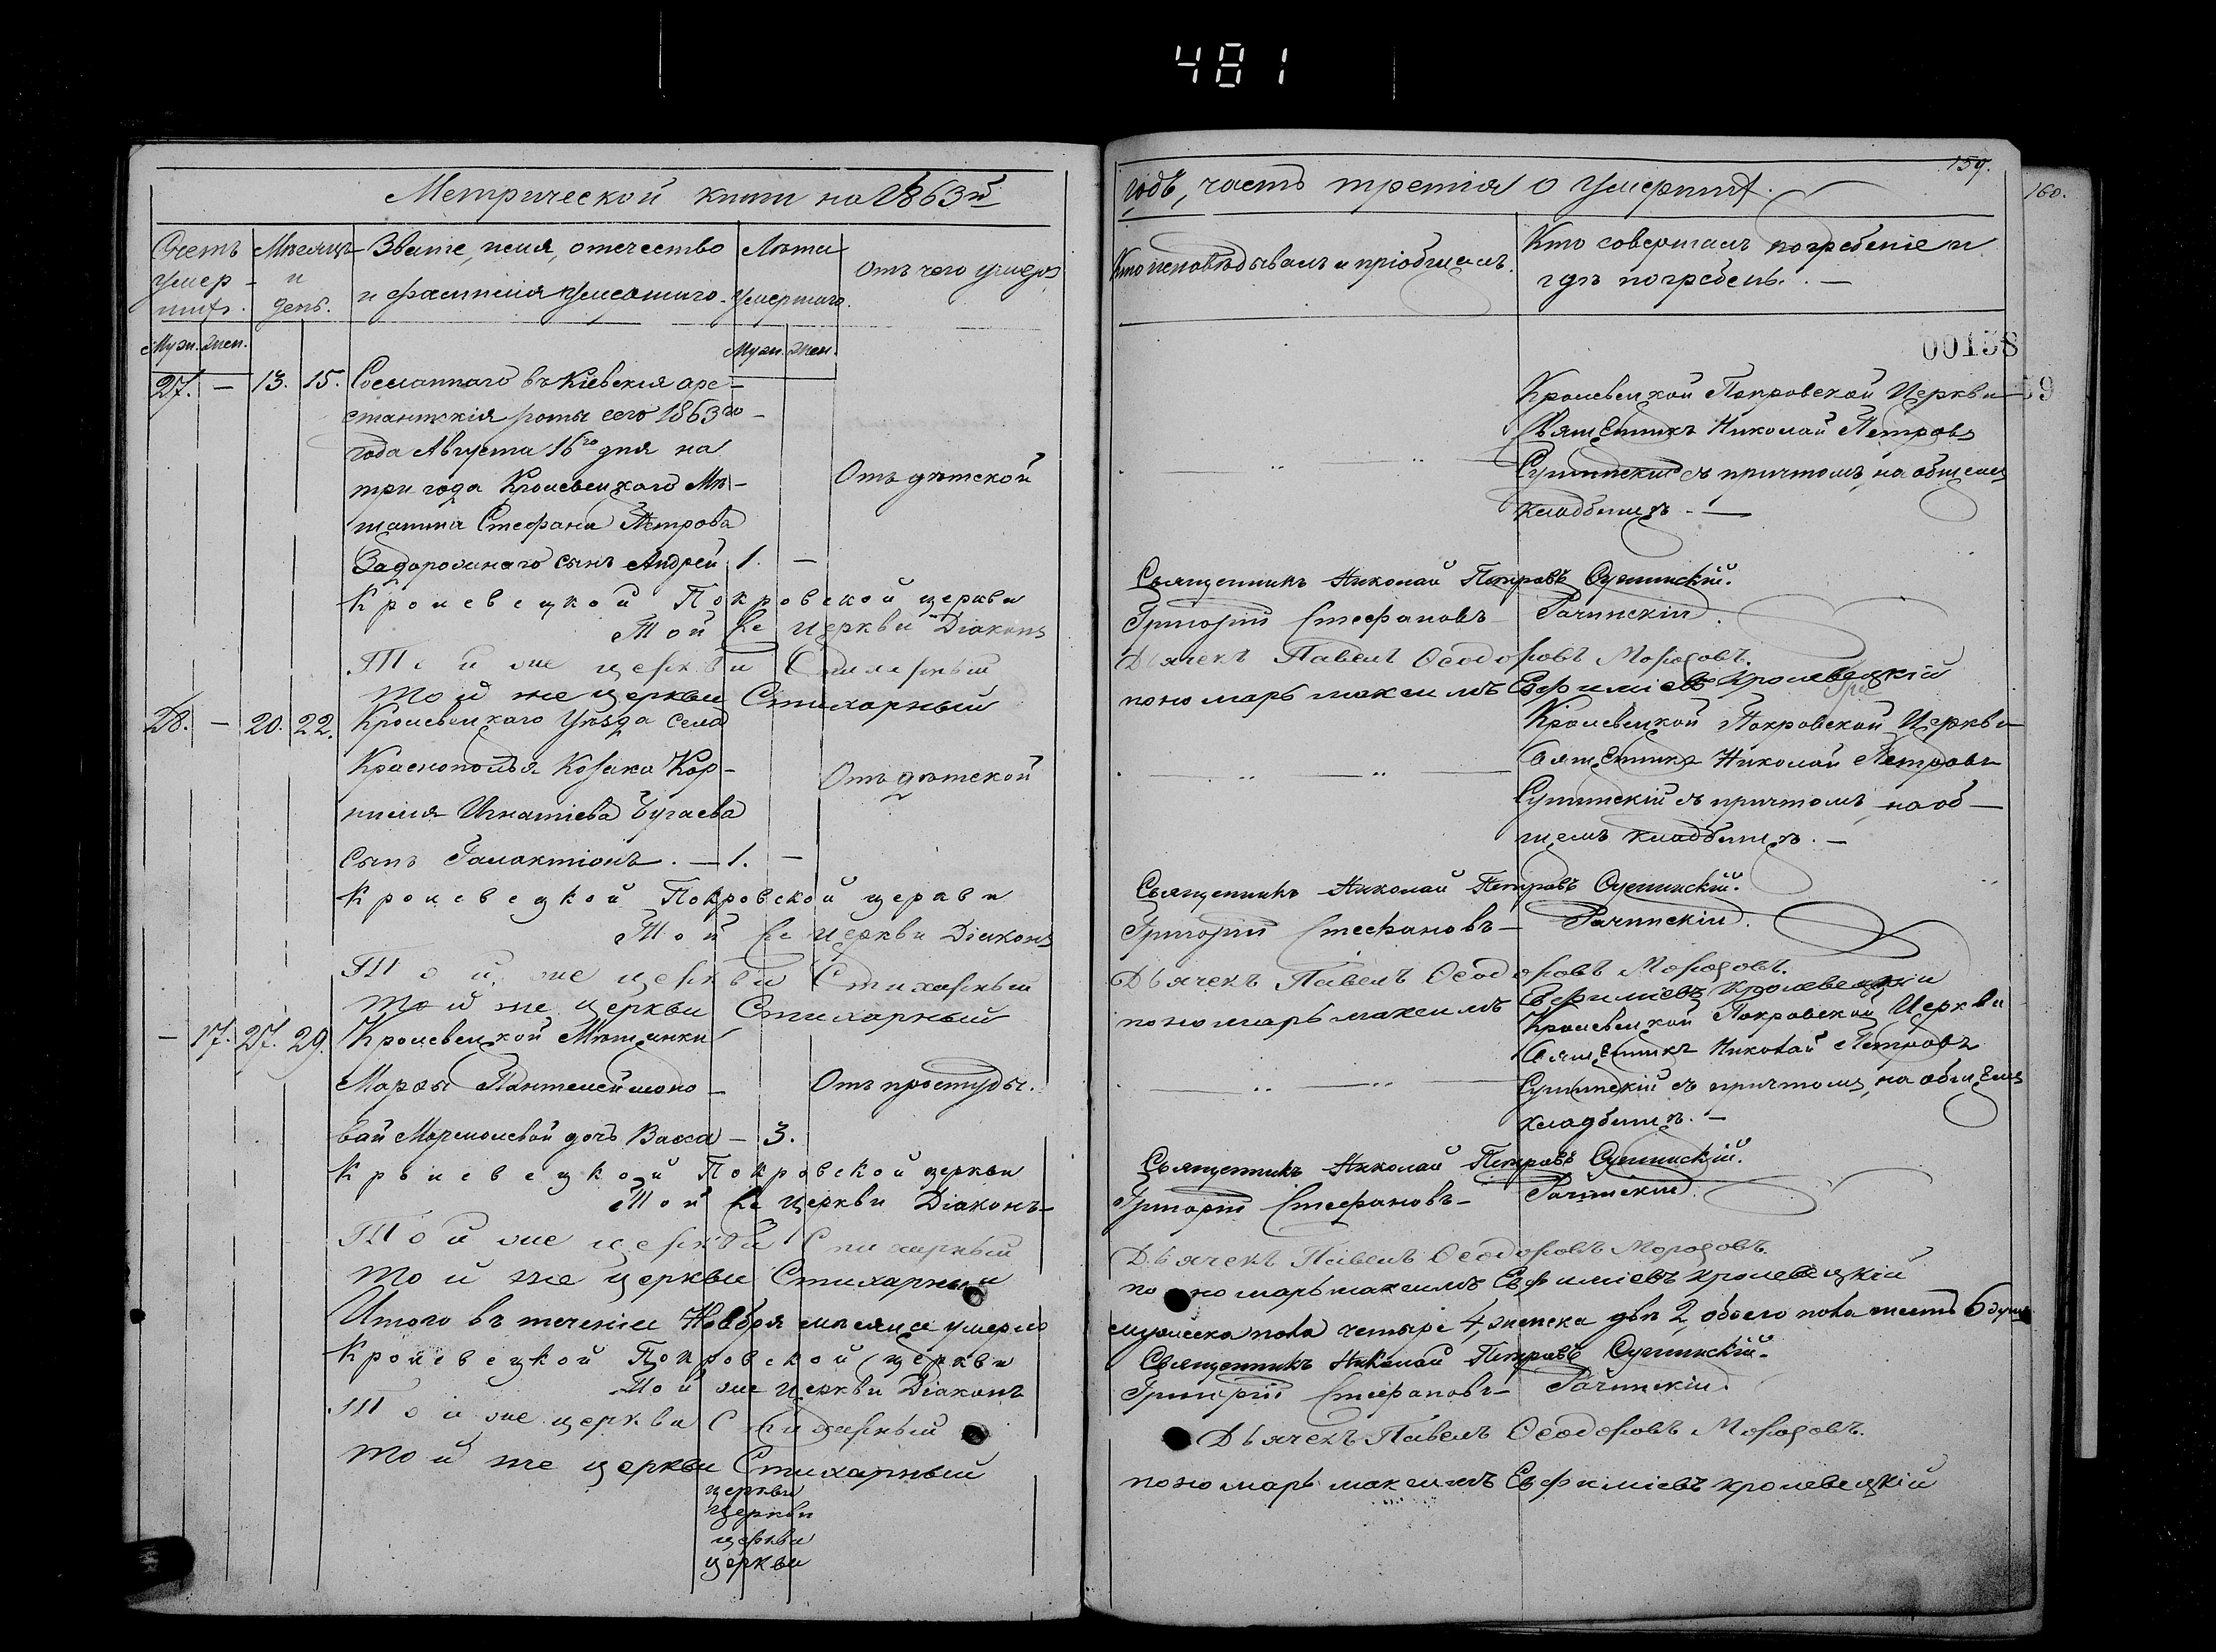 481
Метрической книги на 1863й
Счетъ умер-шихъ.
Мѣсяцъ и день.
Званіе, имя, отечество и фамилія умершаго.
Лѣта умершаго.
Отъ чего умеръ
Муж. Жен.
Муж. Жен.
27. — 13. 15. Сосланнаго въ Кіевскія аре-
стантскія роты сего 1863го
года Августа 16го дня на
три года Кролевецкаго Мѣ-
щанина Стефана Петрова
Задорожнаго сынъ Андрей 1. —
Отъ дѣтской
Кролевецкой Покровской церкви
Той же церкви Діаконъ
Той же церкви Стихарный
Той же церкви Стихарный
28. — 20. 22. Кролевецкаго Уѣзда села
Краснополья Козака Кор-
нилія Игнатіева Бугаева
сынъ Галактіонъ. — 1. —
Отъ дѣтской
Кролевецкой Покровской церкви
Той же церкви Діаконъ
Той же церкви Стихарный
Той же церкви Стихарный
— 17. 27. 29. Кролевецкой Мѣщанки
Марфы Пантелеймоно-
вой дочь Васса — 3.
Отъ простуды.
Кролевецкой Покровской церкви
Той же церкви Діаконъ
Той же церкви Стихарный
Той же церкви Стихарный
Итого въ теченіи Ноября мѣсяца умерло
Кролевецкой Покровской церкви
Той же церкви Діаконъ
Той же церкви Стихарный
Той же церкви Стихарный
церкви
церкви
церкви
церкви
159.
160.
годъ, часть третія о умершихъ.
Кто исповѣдывалъ и пріобщалъ.
Кто совершалъ погребеніе и
гдѣ погребены. —
00158
59
Кролевецкой Покровской Церкви
Священникъ Николай Петровъ
Сушинскій съ причтомъ, на общемъ
кладбищѣ. —
Священникъ Николай Петровъ Сушинскій.
Григорій Стефановъ Рачинскій.
Дьячекъ Павелъ Ѳеодоровъ Морозовъ.
пономарь максимъ Евфиміевъ кролевецкій
Кролевецкой Покровской Церкви
Священникъ Николай Петровъ
Сушинскій съ причтомъ, на об-
щемъ кладбищѣ. —
Священникъ Николай Петровъ Сушинскій.
Григорій Стефановъ Рачинскій.
Дьячекъ Павелъ Ѳеодоровъ Морозовъ.
пономарь максимъ Евфиміевъ кролевецкій
Кролевецкой Покровской Церкви
Священникъ Николай Петровъ
Сушинскій съ причтомъ, на общемъ
кладбищѣ. —
Священникъ Николай Петровъ Сушинскій.
Григорій Стефановъ Рачинскій.
Дьячекъ Павелъ Ѳеодоровъ Морозовъ.
пономарь максимъ Евфиміевъ кролевецкій
мужеска пола четыре 4, женска двѣ 2, обоего пола шесть 6 душъ
Священникъ Николай Петровъ Сушинскій.
Григорій Стефановъ Рачинскій.
Дьячекъ Павелъ Ѳеодоровъ Морозовъ.
пономарь максимъ Евфиміевъ кролевецкій